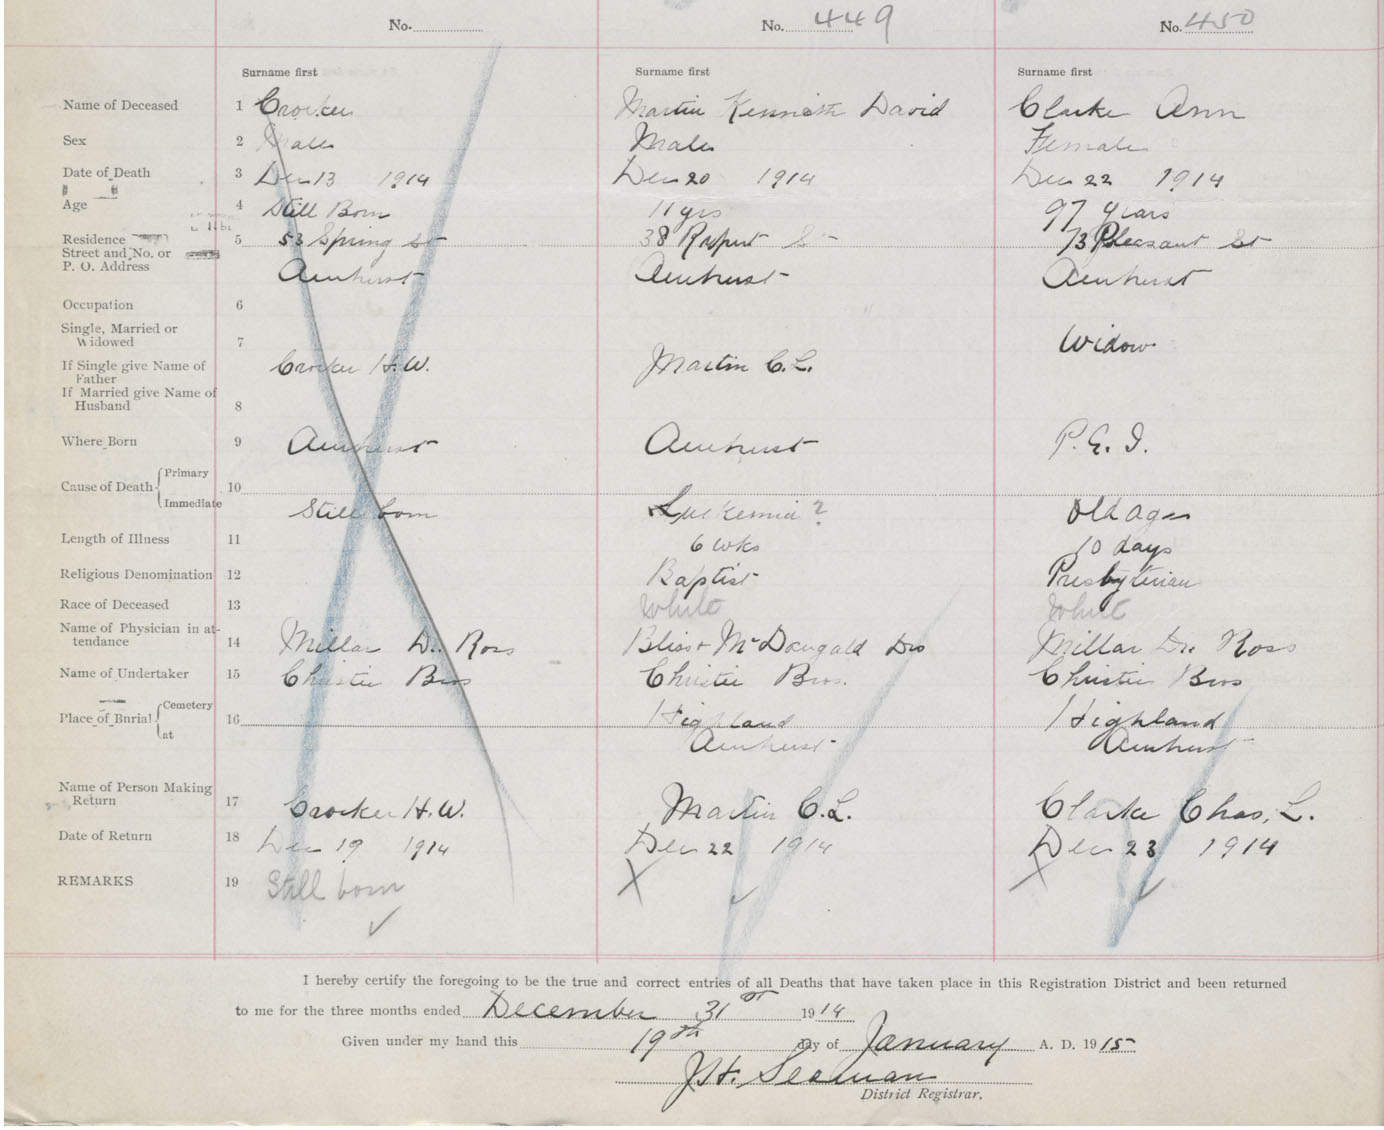 No. No. 449 No. 450
Surname first Surname first Surname first
Name of Deceased 1 Crocker Martin Kenneth David Clarke Ann
Sex 2 Male Male Female
Date of Death 3 Dec 13 1914 Dec 20 1914 Dec 22 1914
Age 4 Still Born 11 yrs 97 years
Residence 5 53 Spring St 38 Rupert St 73 Pleasant St
Street and No. or
P. O. Address Amherst Amherst Amherst
Occupation 6
Single, Married or
Widowed 7 Widow
If Single give Name of Crocker H. W. Martin C. L.
Father
If Married give Name of
Husband 8
Where Born 9 Amherst Amherst P. E. I.
Cause of Death Primary 10
Immediate Still born Leukemia ? Old Age
Length of Illness 11 6 wks 10 days
Religious Denomination 12 Baptist Presbyterian
Race of Deceased 13 White White
Name of Physician in at-
tendance 14 Millar Dr. Ross Bliss & McDougald Drs Millar Dr. Ross
Name of Undertaker 15 Christie Bros Christie Bros. Christie Bros
Place of Burial Cemetery 16 Highland Highland
at Amherst Amherst
Name of Person Making
Return 17 Crocker H. W. Martin C. L. Clarke Chas. L.
Date of Return 18 Dec 19 1914 Dec 22 1914 Dec 23 1914
REMARKS 19 Still born
I hereby certify the foregoing to be the true and correct entries of all Deaths that have taken place in this Registration District and been returned
to me for the three months ended December 31st 1914
Given under my hand this 19th day of January A. D. 1915
J. H. Seaman
District Registrar.